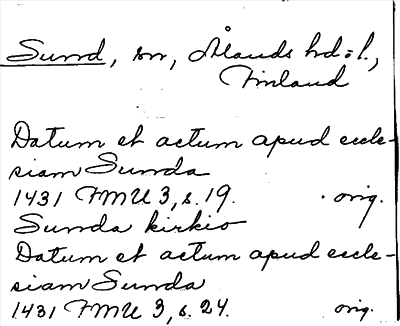 Sund, sn, Ålands hd o l.,
Finland
Datum et actum apud eccle-
siam Sunda
1431 FMU 3, s. 19. orig.
Sunda kirkio
Datum et actum apud eccle-
siam Sunda
1431 FMU 3, s. 24. orig.